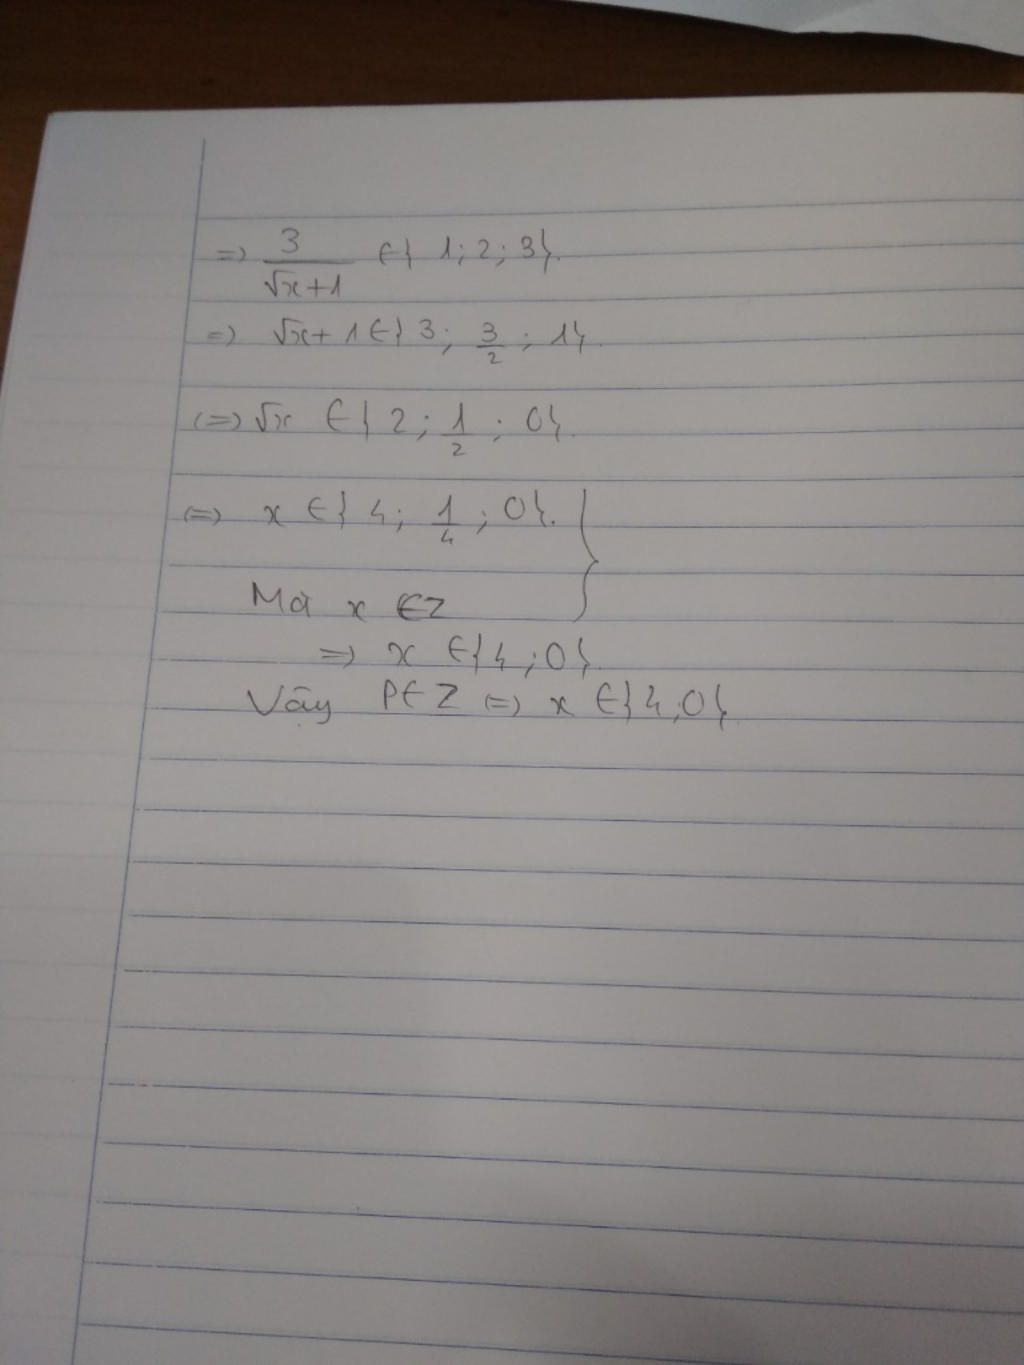 => 3/(√x+1) ∈ { 1; 2; 3}.
=> √x+1 ∈ { 3; 3/2; 1}.
(=) √x ∈ { 2; 1/2; 0}.
(=) x ∈ { 4; 1/4; 0}.
Mà x ∈ Z
=> x ∈ {4; 0}.
Vậy P ∈ Z (=) x ∈ {4; 0}